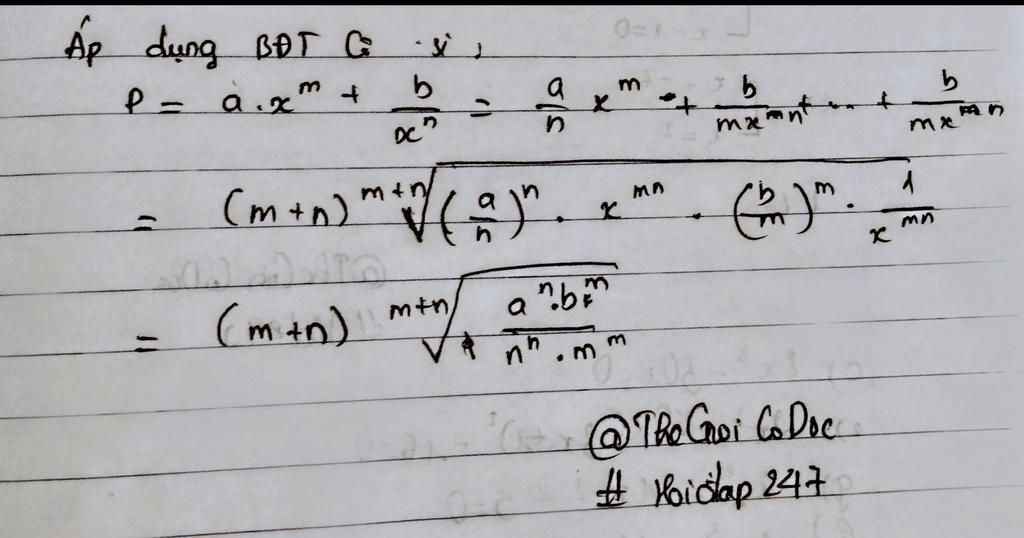 Áp dụng BĐT Cô si,
P = a.x^m + b/x^n = a/n x^m + b/(mx^n) + ... + b/(mx^n)
= (m+n) ^{m+n}√((a/n)^n . x^{mn} . (b/m)^m . 1/x^{mn})
= (m+n) ^{m+n}√(a^n.b^m / n^n.m^m)
# Hoidap 247